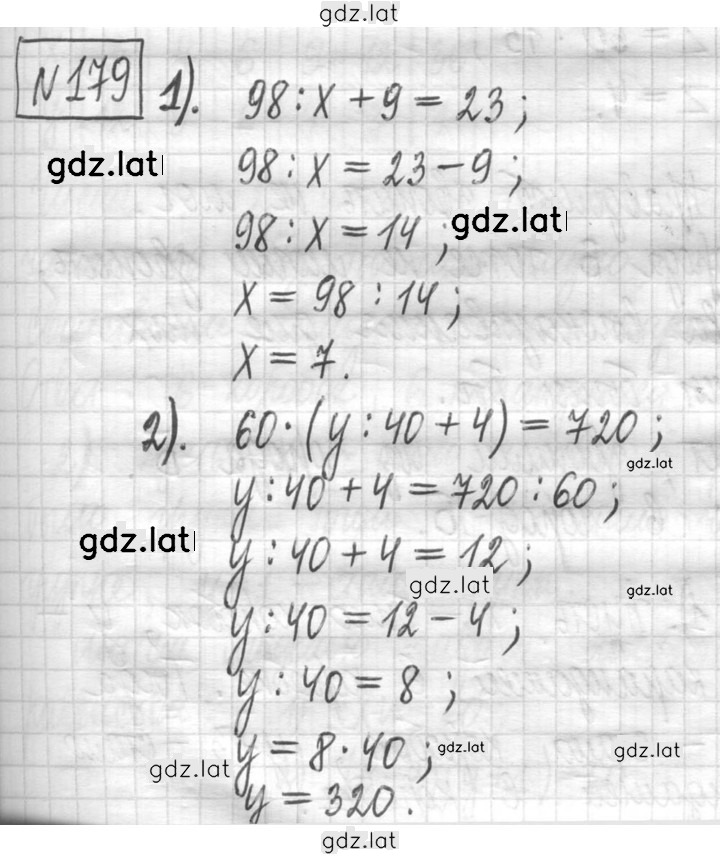 gdz.lat
N 179 1). 98 : x + 9 = 23 ;
gdz.lat 98 : x = 23 - 9 ;
98 : x = 14 ; gdz.lat
x = 98 : 14 ;
x = 7 .
2). 60 · (y : 40 + 4) = 720 ;
gdz.lat
y : 40 + 4 = 720 : 60 ;
gdz.lat y : 40 + 4 = 12 ;
gdz.lat gdz.lat
y : 40 = 12 - 4 ;
y : 40 = 8 ;
y = 8 · 40 ; gdz.lat gdz.lat
gdz.lat
y = 320 .
gdz.lat